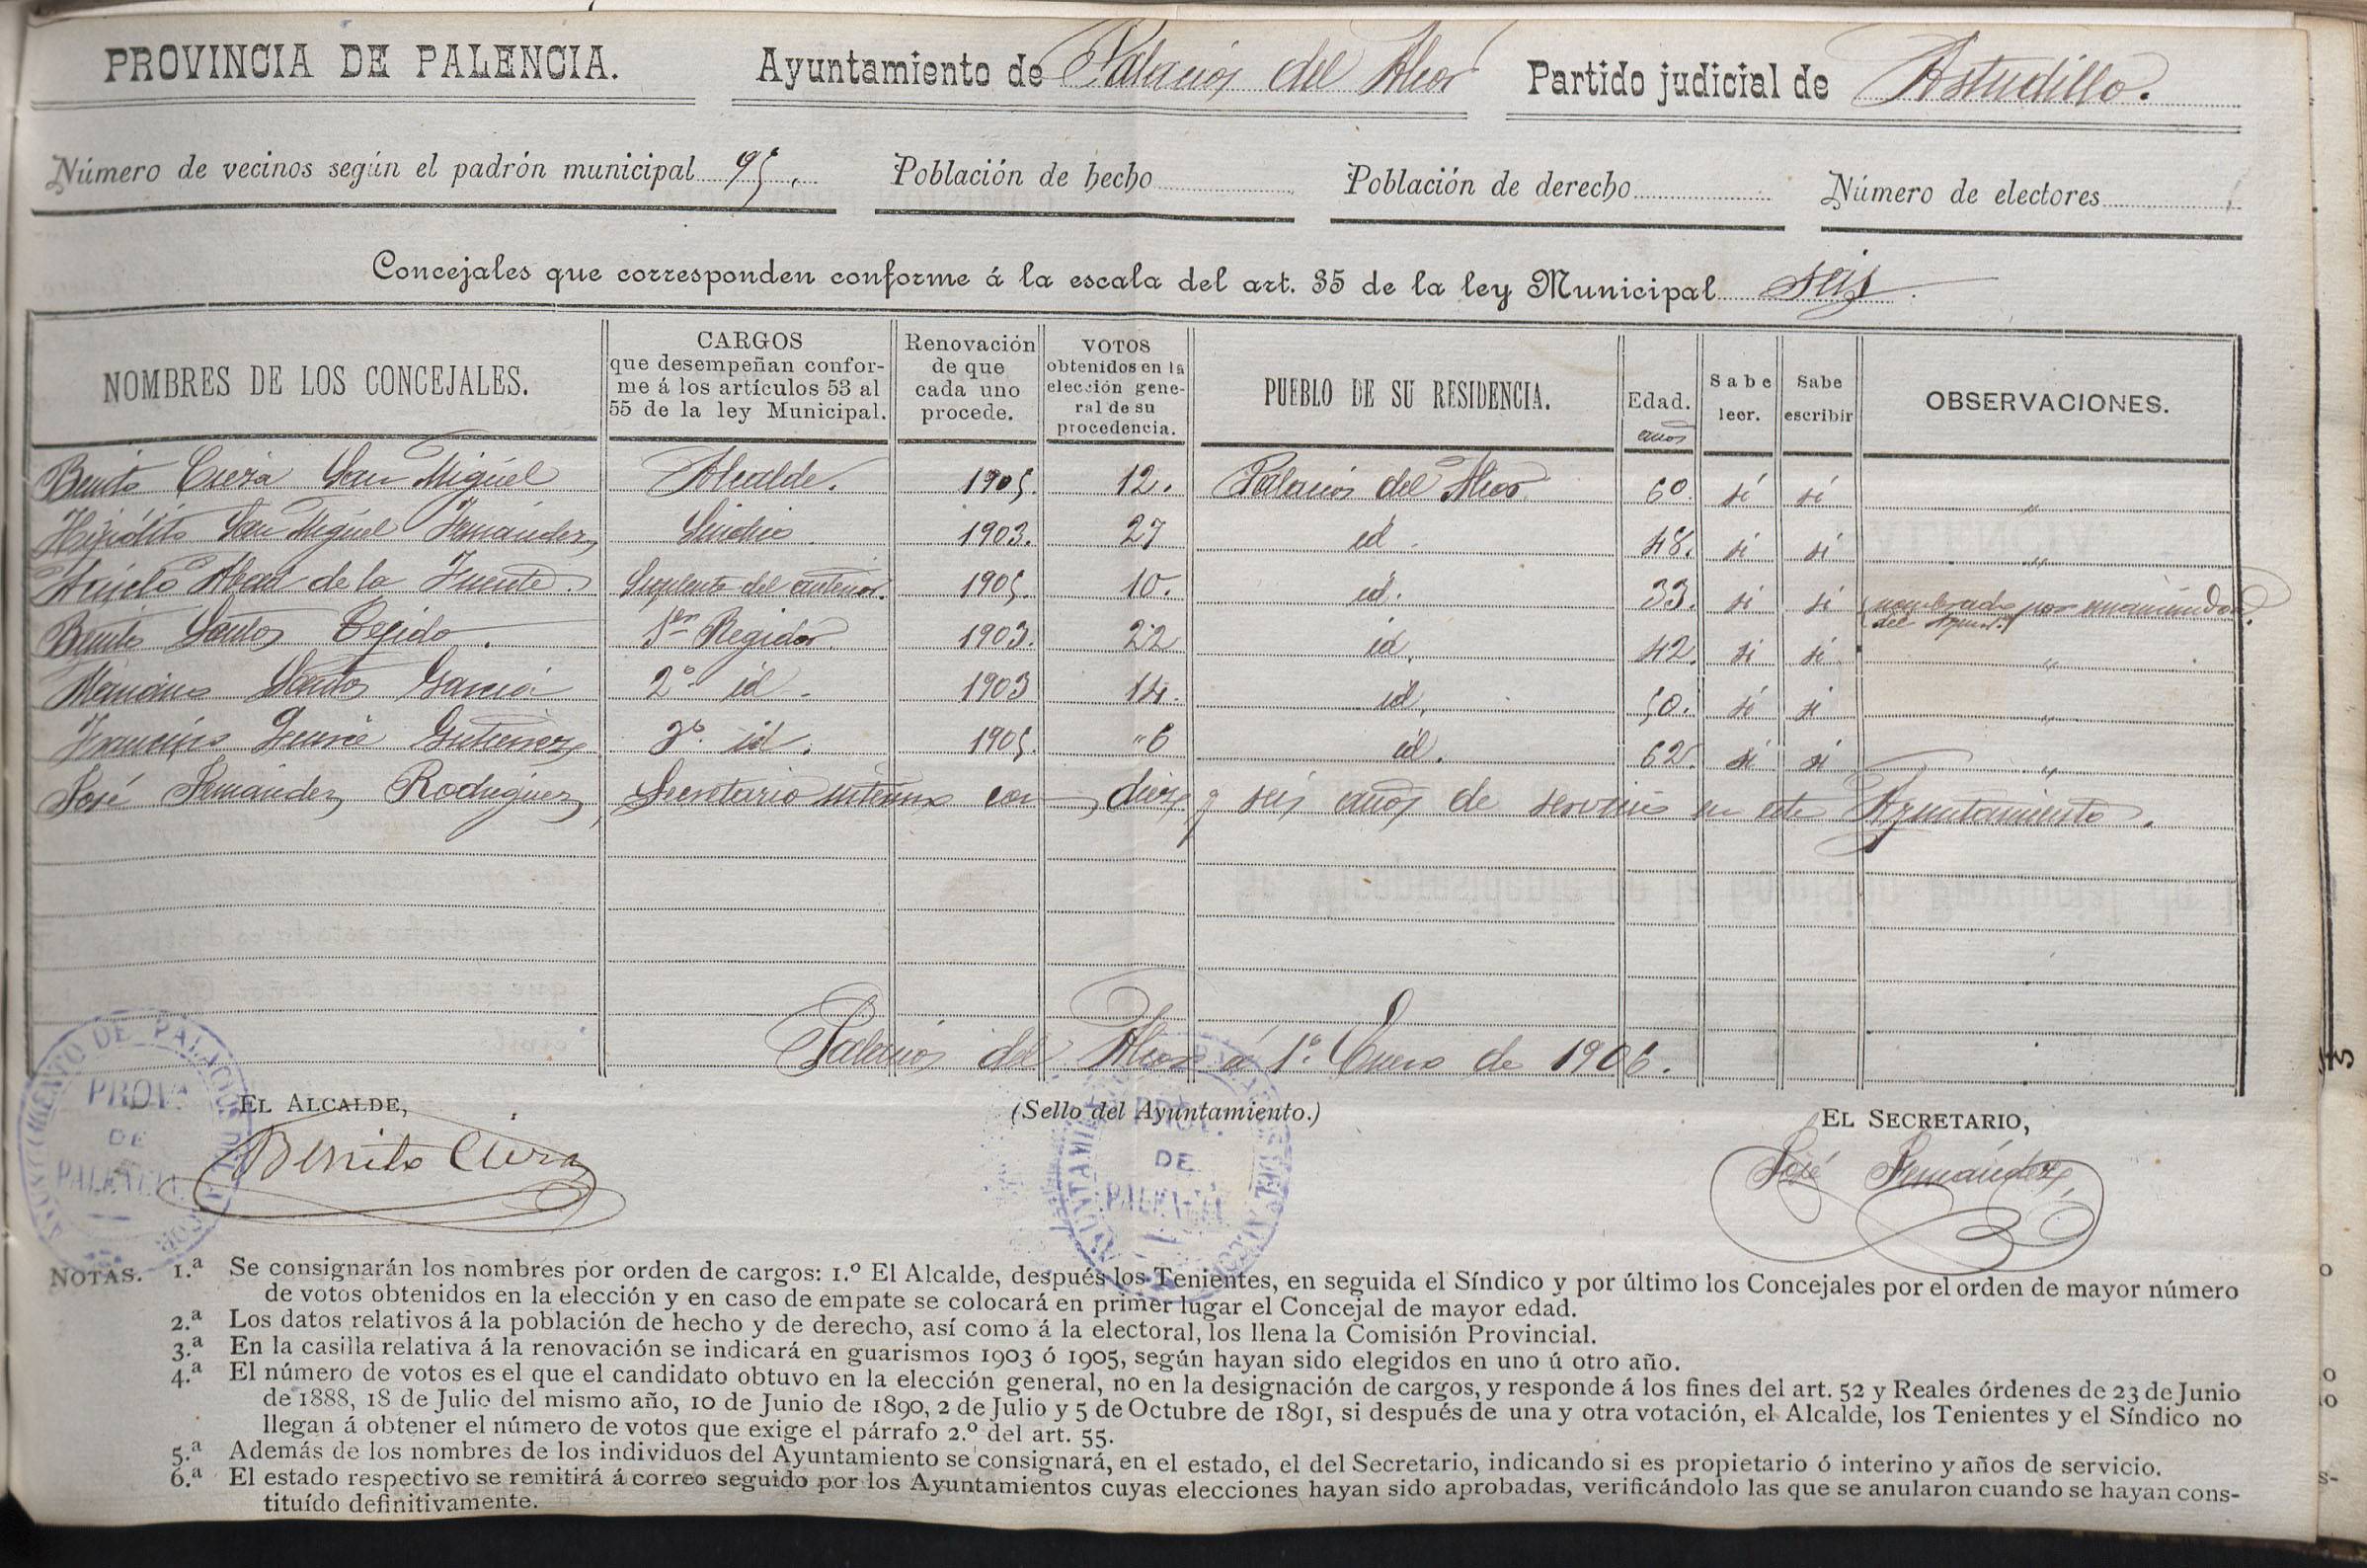 PROVINCIA DE PALENCIA. Ayuntamiento de Palacios del Alcor Partido judicial de Astudillo.
Número de vecinos según el padrón municipal 95. Población de hecho Población de derecho Número de electores
Concejales que corresponden conforme á la escala del art. 35 de la ley Municipal seis.
NOMBRES DE LOS CONCEJALES. CARGOS que desempeñan conforme á los artículos 53 al 55 de la ley Municipal. Renovación de que cada uno procede. VOTOS obtenidos en la elección general de su procedencia. PUEBLO DE SU RESIDENCIA. Edad. años Sabe leer. Sabe escribir OBSERVACIONES.
Benito Cieza San Miguel Alcalde. 1905. 12. Palacios del Alcor 60. sí sí "
Hipólito San Miguel Fernández Síndico. 1903. 27 id. 48. si si "
Abad de la Fuente. Suplente del anterior. 1905. 10. id. 33. si si nombrado por unanimidad del Ayunt.
Benito Santos Tejido. 1er Regidor. 1903. 22 id. 42. si si "
Mariano Santos García 2º id. 1903 14. id. 50. si si "
Francisco Gutierrez 3º id. 1905. "6 id. 62. si si "
José Fernández Rodríguez, Secretario interino con diez y seis años de servicio en este Ayuntamiento.
Palacios del Alcor á 1º. Enero de 1906.
EL ALCALDE, (Sello del Ayuntamiento.) EL SECRETARIO,
Benito Cieza José Fernández
AYUNTAMIENTO DE PALACIOS DEL ALCOR
PROVA DE PALENCIA
PROV. DE PALENCIA
NOTAS. 1.ª Se consignarán los nombres por orden de cargos: 1.º El Alcalde, después los Tenientes, en seguida el Síndico y por último los Concejales por el orden de mayor número
de votos obtenidos en la elección y en caso de empate se colocará en primer lugar el Concejal de mayor edad.
2.ª Los datos relativos á la población de hecho y de derecho, así como á la electoral, los llena la Comisión Provincial.
3.ª En la casilla relativa á la renovación se indicará en guarismos 1903 ó 1905, según hayan sido elegidos en uno ú otro año.
4.ª El número de votos es el que el candidato obtuvo en la elección general, no en la designación de cargos, y responde á los fines del art. 52 y Reales órdenes de 23 de Junio
de 1888, 18 de Julio del mismo año, 10 de Junio de 1890, 2 de Julio y 5 de Octubre de 1891, si después de una y otra votación, el Alcalde, los Tenientes y el Síndico no
llegan á obtener el número de votos que exige el párrafo 2.º del art. 55.
5.ª Además de los nombres de los individuos del Ayuntamiento se consignará, en el estado, el del Secretario, indicando si es propietario ó interino y años de servicio.
6.ª El estado respectivo se remitirá á correo seguido por los Ayuntamientos cuyas elecciones hayan sido aprobadas, verificándolo las que se anularon cuando se hayan cons-
tituído definitivamente.